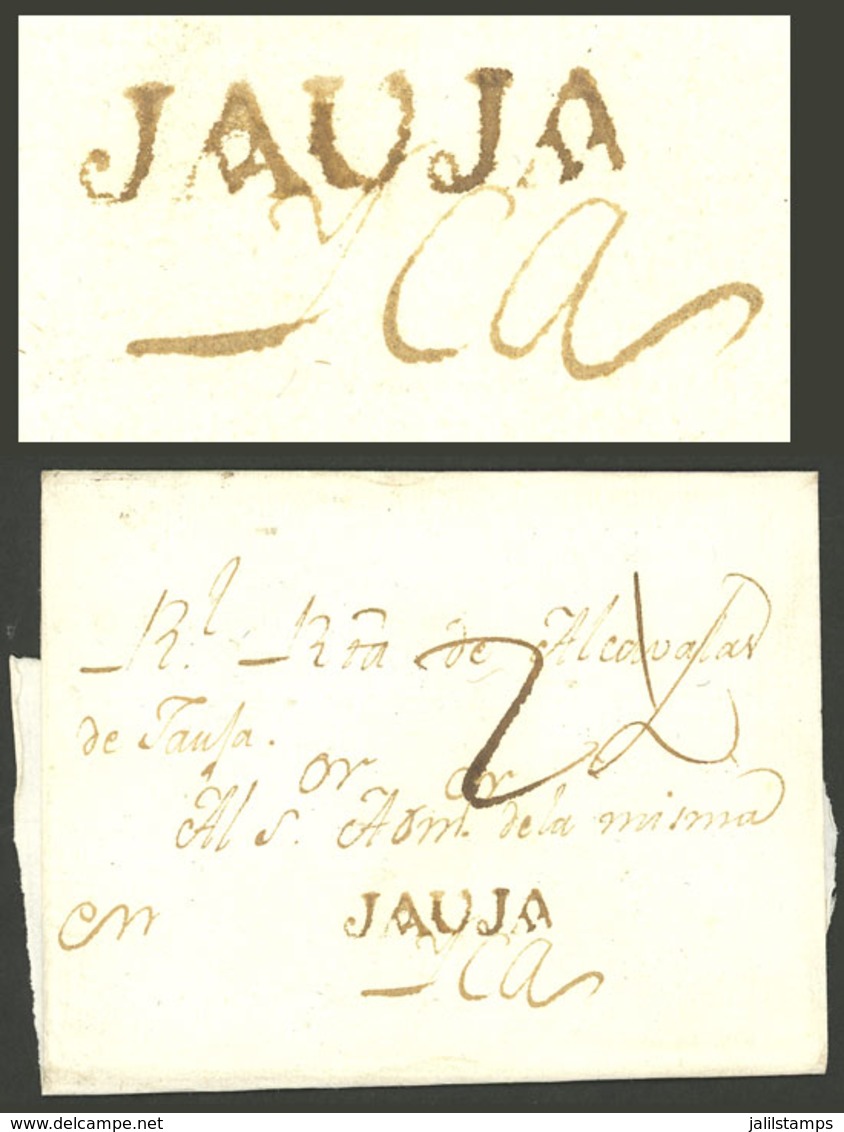 JAUJA
Yca
Rl. Rta de Alcavalas
de Jauja.
Al Sor. Admor. dela misma
en
JAUJA
Yca
www.delcampe.net
jalilstamps